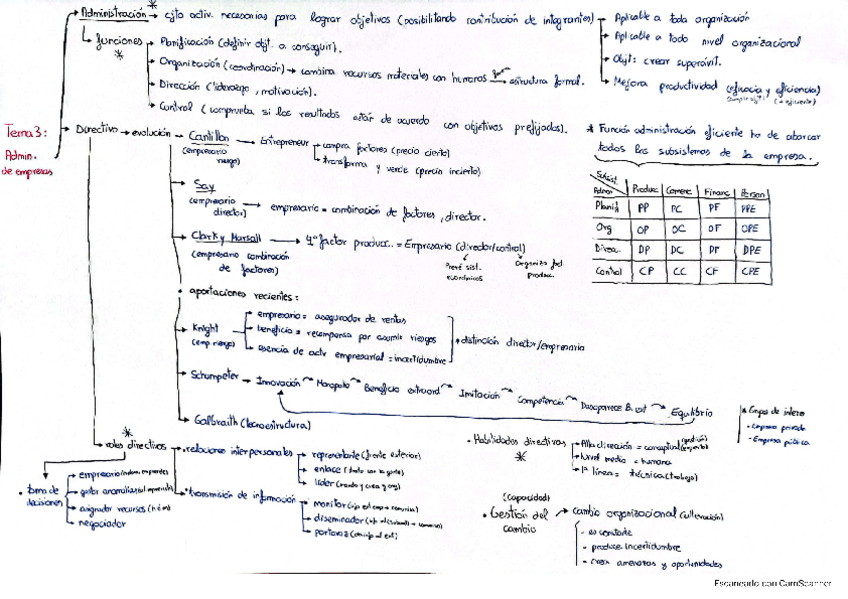 Administración → cjto activ. necesarias para lograr objetivos (posibilitando contribución de integrantes)
Aplicable a toda organización
Aplicable a todo nivel organizacional
Objt: crear superávit.
Mejora productividad (eficacia y eficiencia)
funciones
*
Planificación (definir objt. a conseguir).
Organización (coordinación) → combina recursos materiales con humanos → estructura formal.
Dirección (liderazgo, motivación).
Control (comprueba si los resultados están de acuerdo con objetivos prefijados).
Tema 3:
Admin.
de empresas
Directivo → evolución → Cantillon → Entrepreneur
(empresario riesgo)
compra factores (precio cierto)
transforma y vende (precio incierto)
* Función administración eficiente ha de abarcar
todos los subsistemas de la empresa.
Subsist Admon | Produc | Comerc | Financ | Person
Planif | PP | PC | PF | PPE
Org | OP | OC | OF | OPE
Direcc | DP | DC | DF | DPE
Control | CP | CC | CF | CPE
Say
(empresario director) → empresario = combinación de factores, director.
Clark y Marsall → 4º factor producc. = Empresario (director/control)
(empresario combinación de factores)
Prevé sist. económicos
Organiza fact. produc.
• aportaciones recientes:
Knight
(emp riesgo)
empresario = asegurador de rentas
beneficio = recompensa por asumir riesgos
esencia de actv empresarial = incertidumbre
distinción director/empresario
Schumpeter → Innovación → Monopolio → Beneficio extraord → Imitación → Competencia → Desaparece B. ext → Equilibrio
Galbraith (tecnoestructura)
* Grupos de interés
- Empresa privada
- Empresa pública
*
roles directivos
• relaciones interpersonales
representante (frente exterior)
enlace
líder
• transmisión de información
monitor
diseminador
portavoz
• toma de decisiones
empresario
gestor anomalías
asignador recursos
negociador
• Habilidades directivas
*
Alta dirección = conceptual
Nivel medio = humana
1ª línea = técnica (trabajo)
(capacidad)
• Gestión del cambio → cambio organizacional
- es constante
- produce incertidumbre
- crea amenazas y oportunidades
Escaneado con CamScanner